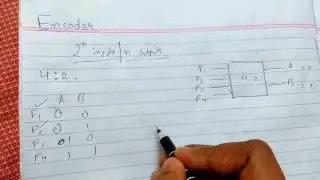 Encoder
2^n inputs | n outputs
4:2
A B
F1 0 0
F2 0 1
F3 1 0
F4 1 1
F1
F2
F3
F4
4:2
A
B